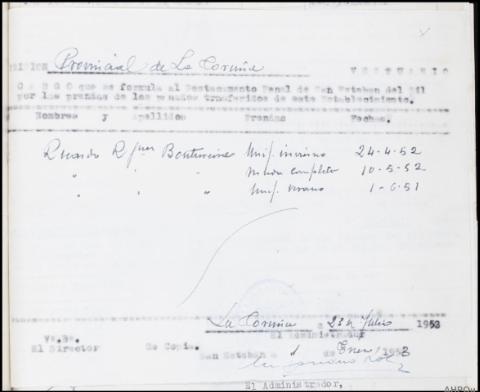 PRISION Provincial de La Coruña VESTUARIO
CARGO que se formula al Destacamento Penal de San Esteban del Sil
por las prendas de los penados trnsferidos de este Establecimiento.
Nombres y Apellidos Prendas Fechas.
Ricardo Rguez Unif. invierno 24-4-52
" " " Muda completa 10-5-52
" " " Unif. verano 1-6-51
La Coruña a 23 de Julio 1953
El Administrador
Vº.Bº.
El Director Es Copia. San Esteban a de Enero 1953
El Administrador,